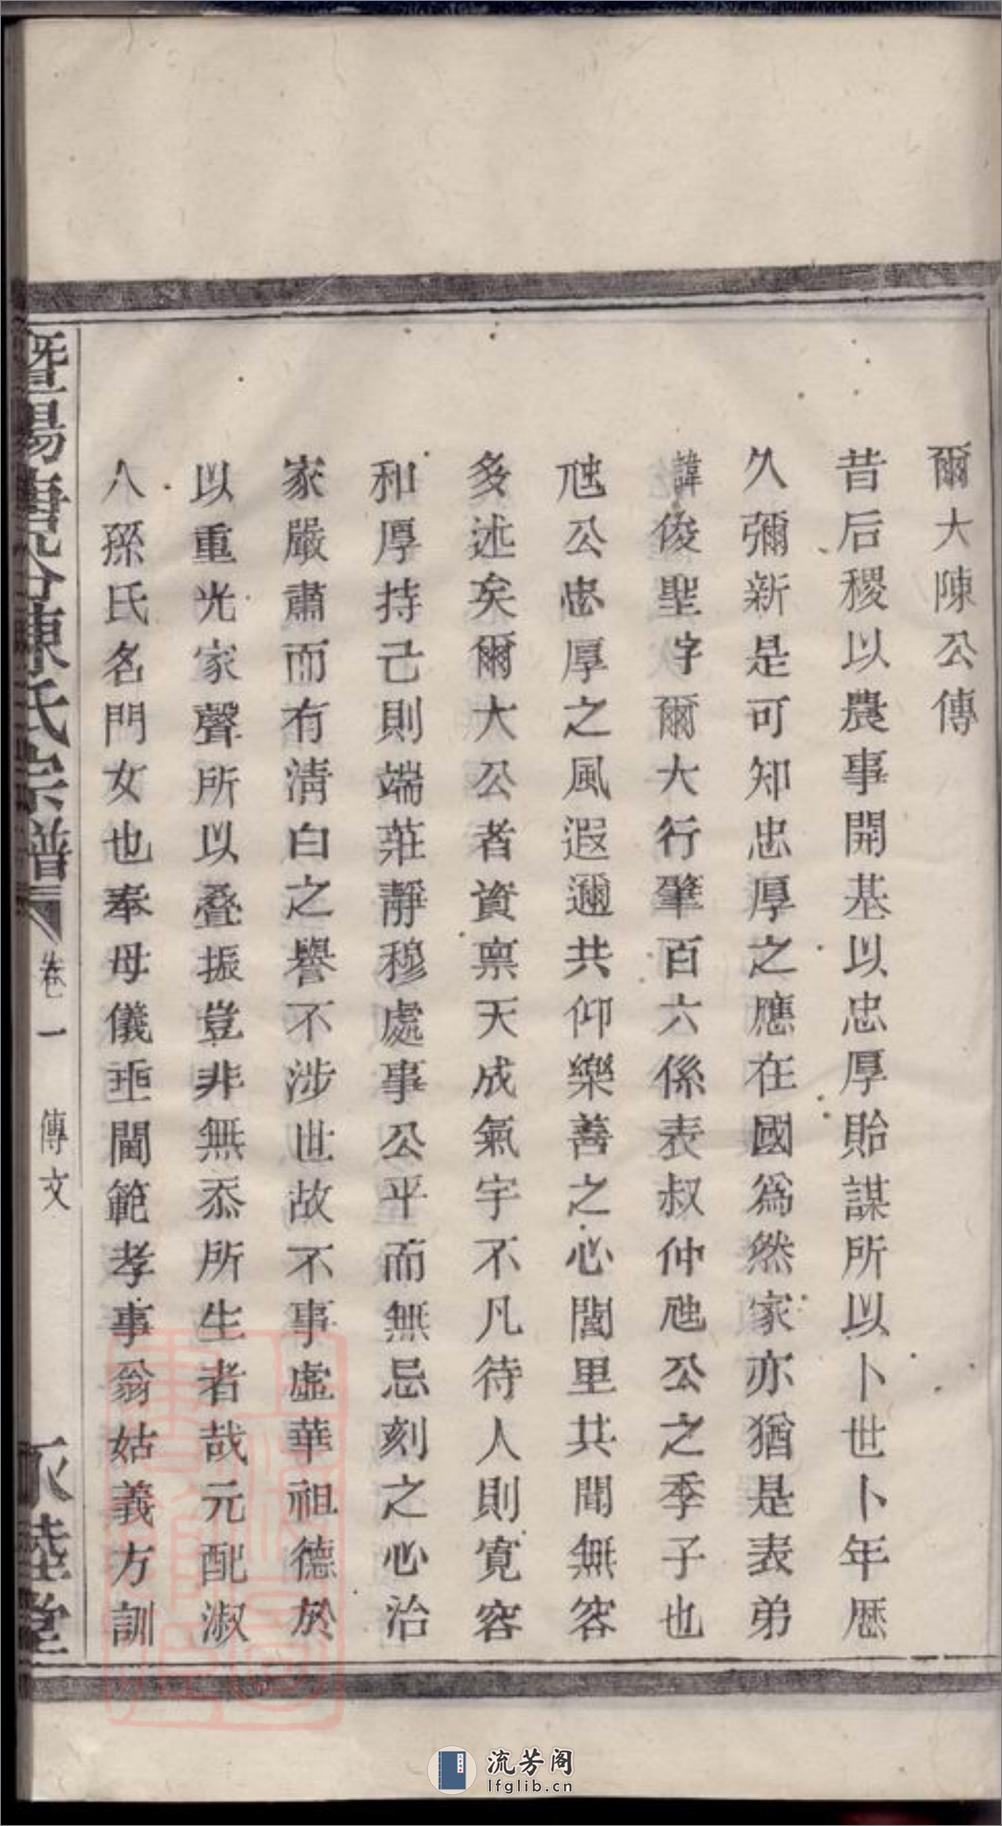 爾大陳公傳
昔后稷以農事開基以忠厚貽謀所以卜世卜年歷
久彌新是可知忠厚之應在國爲然家亦猶是表弟
諱俊聖字爾大行肇百六係表叔仲虺公之季子也
虺公忠厚之風遐邇共仰樂善之心閭里共聞無容
多述矣爾大公者資稟天成氣宇不凡待人則寬容
和厚持己則端莊靜穆處事公平而無忌刻之心治
家嚴肅而有淸白之譽不涉世故不事虛華祖德於
以重光家聲所以叠振豈非無忝所生者哉元配淑
人孫氏名門女也奉母儀垂閫範孝事翁姑義方訓
暨陽 陳氏宗譜 卷一 傳文 睦堂
流芳阁
lfglib.cn